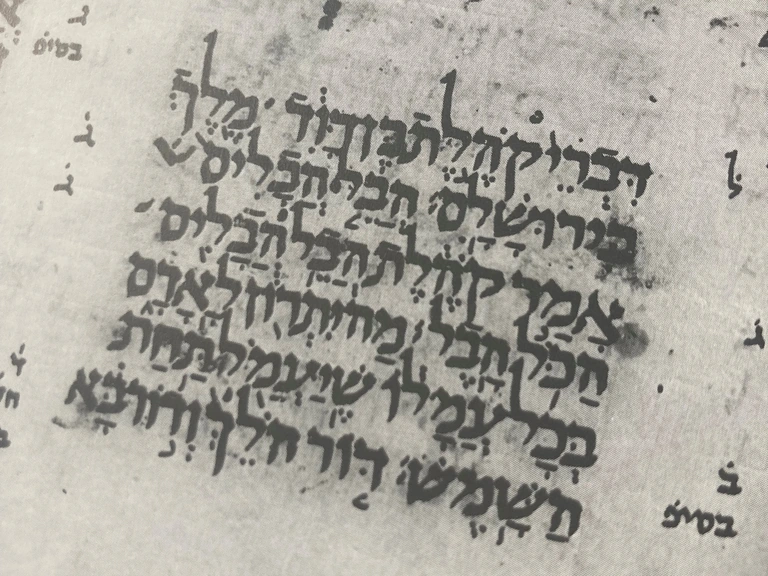 ג̇
בסיפ̇
דִּבְרֵי קֹהֶלֶת בֶּן דָּוִד מֶלֶךְ
ג̇
ל̇
בִּירוּשָׁלִָם׃ הֲבֵל הֲבָלִים
ג̇
אָמַר קֹהֶלֶת הֲבֵל הֲבָלִים
הַכֹּל הָבֶל׃ מַה יִּתְרוֹן לָאָדָם
ג̇
בְּכָל עֲמָלוֹ שֶׁיַּעֲמֹל תַּחַת
הַשָּׁמֶשׁ׃ דּוֹר הֹלֵךְ וְדוֹר בָּא
ב̇
בסיפ̇